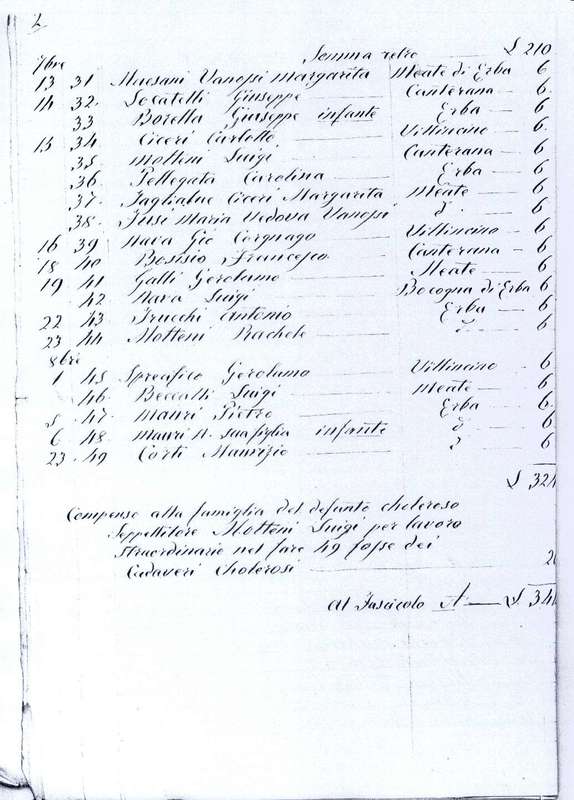 2
Somma retro £ 210
7bre
13 31 Maesani Vanossi Margarita Meate di Erba 6
14 32. Locatelli Giuseppe Canterana 6.
33 Borella Giuseppe infante Erba 6.
15 34 Ciceri Carlotta Villincino 6.
35. Molteni Luigi Canterana 6.
36. Pellegata Carolina Erba 6.
37. Tagliabue Ciceri Margarita Meate 6.
38. Fusi Maria Vedova Vanossi d.º 6
16 39 Nava Gio Corgnago Villincino 6.
18 40 Bosisio Francesco Canterana 6
19 41 Galli Gerolamo Meate 6
42 Nava Luigi Bocogna di Erba 6
22 43 Frucchi Antonio Erba 6
23 44 Molteni Rachele 6
8bre
1 45 Spreafico Gerolamo Villincino 6
46. Beccalli Luigi Meate 6
5 47. Mauri Pietro Erba 6
6 48 Mauri N. sua figlia infante 6
23 49 Corti Maurizio 6
£ 324
Compenso alla famiglia del defunto choleroso
Seppellitore Molteni Luigi per lavoro
straordinario nel fare 49 fosse dei
Cadaveri Cholerosi
Al Fascicolo A £